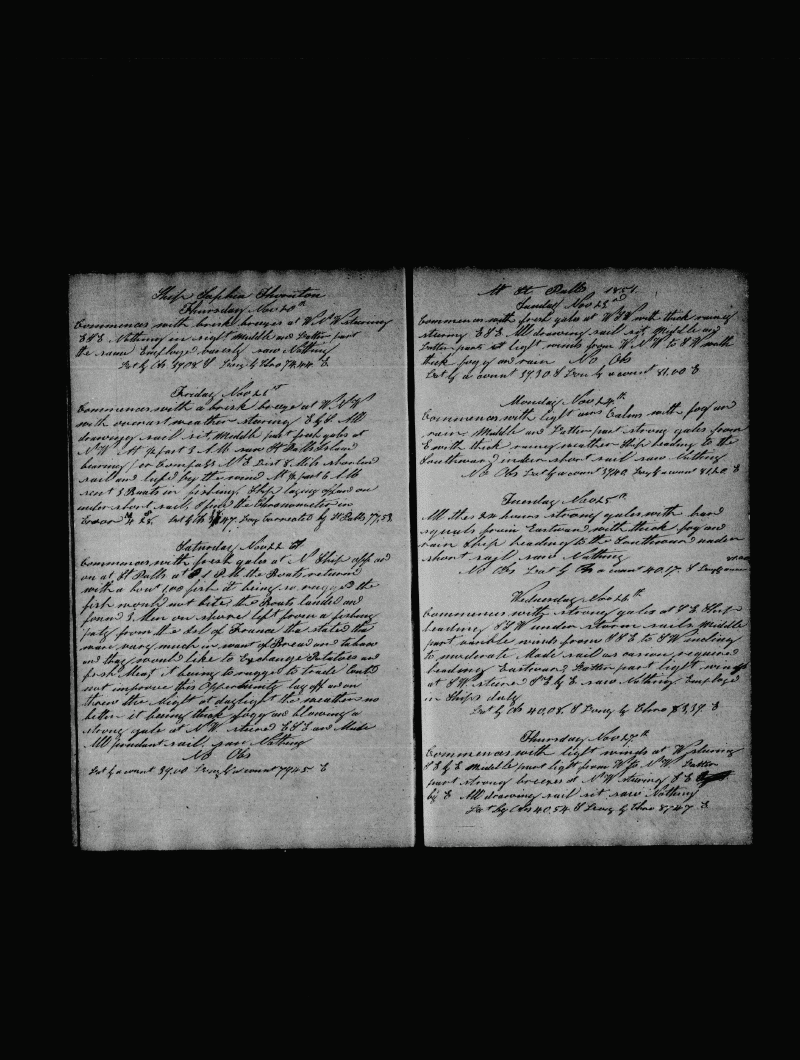 Ship Sophia Thornton
Thursday Nov 20th
Commences with brisk breezes at WNW steering
ESE Nothing in sight Middle and Latter part
the same Employed buisly saw Nothing
Lat by Obs 37,08 S Long by Chro 74,44 E
Friday Nov 21st
Commences with a brisk breeze at
with overcast weather steering E by S All
drawing sail set Middle part fresh gales at
NW At part 3 AM saw St Pauls Island
bearing Compass NE Dist 8 Mils shortened
sail and lufed by the wind At part 6 AM
sent 3 Boats in fishing Ship laying off and on
under short sail, the Chronometer in
Error Lat by Ob 47 Long by St Pauls 77,53
Saturday Nov 22
Commences with fresh gales at N Ship off and
on at St Pauls at 1 P.M. the Boats returned
with a bout 100 fish it being so rugged the
fish would not bite the Boats landed and
found 3 Men on shore left from a fishing
party from the Isl of France tha stated tha
ware vary much in want of Bread and tabaco
and thay would like to Exchange Potatoes and
fresh Meat it being to rugged to trade Could
not improve this Oppertunity lay off and on
threw the Night at daylight the weather no
better it being thick fogy and blowing a
strong gale at NW steered ESE and Made
All sail, saw Nothing
No Obs
Lat by a count 39.00 Long by a count 79.45 E
At St Pauls 1851
Sunday Nov 23rd
Commences with fresh gales at WNW with thick rainey
steering ESE All drawing sail set Middle and
Latter part set light winds from WNW to SW with
thick fog and rain No Obs
Lat by a count 39.30 S Long by a count 81.00 E
Monday Nov 24th
Commences with light airs Calms with fog and
rain Middle and Latter part strong gales from
E with thick rainey weather Ship heading to the
Southward under short sail saw Nothing
No Obs Lat by a count 39.40 Long by a count 81.20 E
Tuesday Nov 25th
All thes 24 hours strong gales with hard
squals from Eastward with thick fog and
rain Ship heading to the Southward under
short sail saw Nothing
No Obs Lat by a count 40.17 S Long by account
Wednesday Nov 26th
Commences with strong gales at SE Ship
heading SSW under storm sails Middle
part varable winds from SSE to SW incling
to moderate Made sail as occasion required
heading Eastward Latter part light winds
at SW steered SE by E saw Nothing Employed
in Ships duty
Lat by Obs 40,08 S Long by Chro 83,37 E
Thursday Nov 27th
Commences with light winds at W steering
SE by E Middle part light from W to NW Latter
part strong breezes at NW steering SE
by E All drawing sail set saw Nothing
Lat by Obs 40.54 S Long by Chro 87.47 E